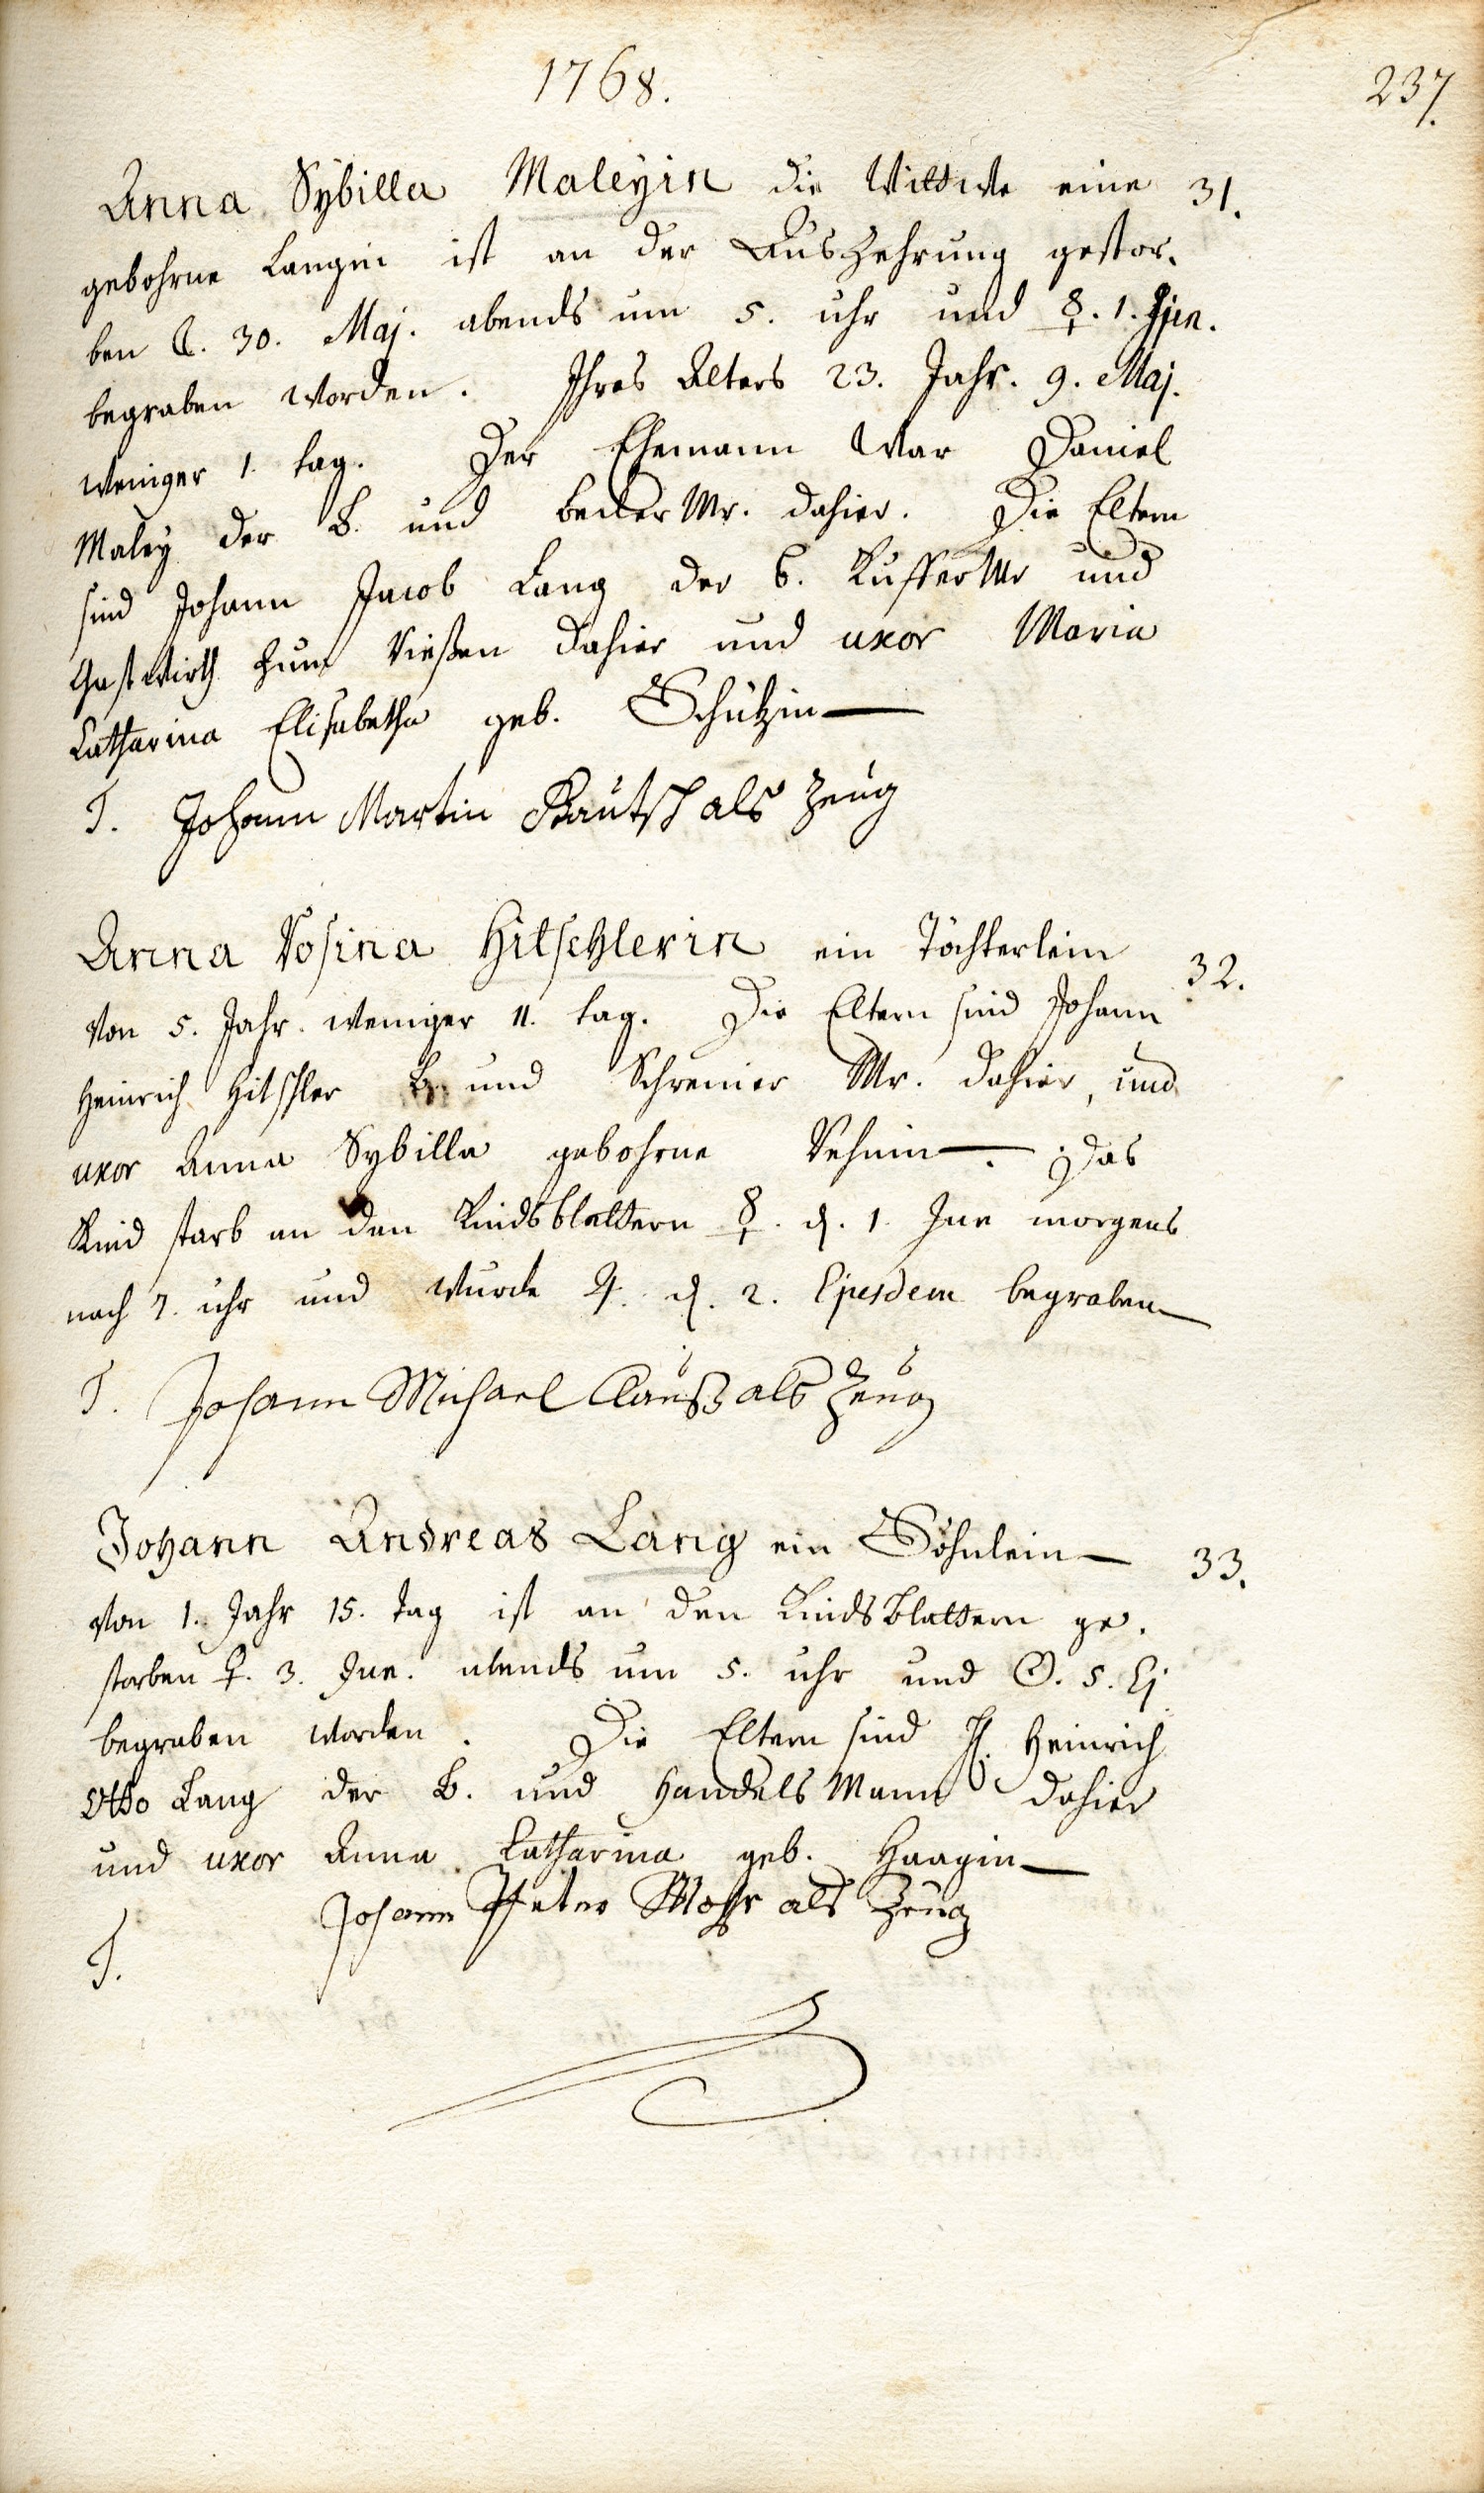 1768.
237.
Anna Sybilla Maleyin die Wittwe eine 31.
gebohrne Langin ist an der Auszehrung gestor-
ben ☾. 30. Maj. abends um 5. uhr und ☿. 1. Jun.
begraben worden. Ihres Alters 23. Jahr. 9. Maj.
weniger 1. tag. Der Ehemann war Daniel
Maley der B. und becker Mr. dahier. Die Eltern
sind Johann Jacob Lang der B. Kuffer Mr und
Gastwirth zum Riesen dahier und uxor Maria
Catharina Elisabetha geb. Schützin
T. Johann Martin Bautsch als Zeug
Anna Rosina Hitschlerin ein Töchterlein 32.
von 5. Jahr. weniger 11. tag. Die Eltern sind Johann
Heinrich Hitschler B. und Schreiner Mr. dahier, und
uxor Anna Sybilla gebohrne Rehmin. Das
Kind starb an den Kindsblattern ☿. d. 1. Jun morgens
nach 7. uhr und wurde ♃. d. 2. Ejusdem begraben
T. Johann Michael Clauß als Zeug
Johann Andreas Lang ein Söhnlein 33.
von 1. Jahr 15. Tag ist an den Kindsblattern ge-
storben ♀. 3. Jun. abends um 5. uhr und ☉. 5. Ej
begraben worden. Die Eltern sind H. Heinrich
Otto Lang der B. und Handels Mann dahier
und uxor Anna Catharina geb. Haagin
Johann Peter Mohr als Zeug
T.